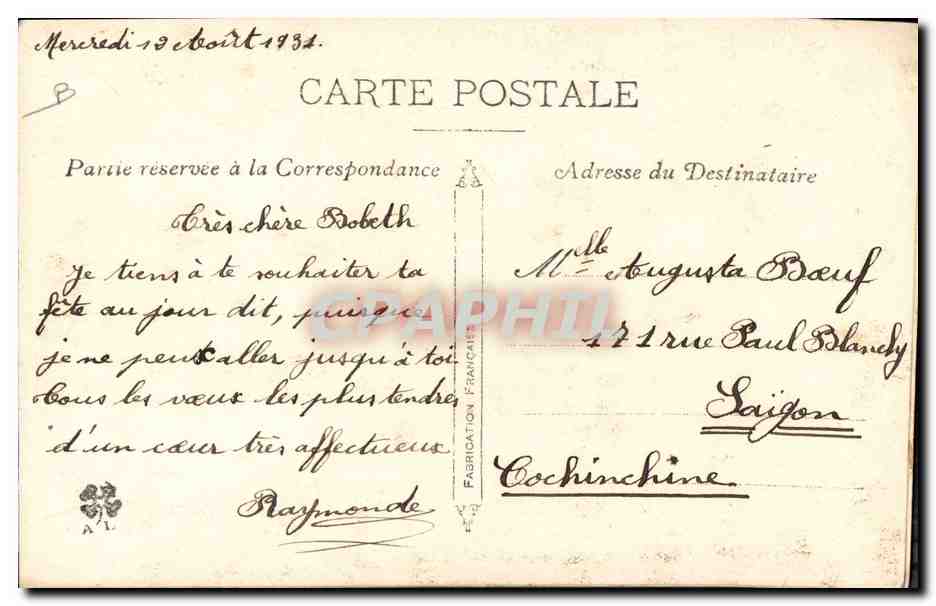 Mercredi 19 Août 1931.
B
CARTE POSTALE
Partie réservée à la Correspondance
Très chère Bobeth
Je tiens à te souhaiter ta
fête au jour dit, puisque
je ne peux aller jusqu'à toi
Tous les vœux les plus tendres
d'un cœur très affectueux
Raymonde
A L
FABRICATION FRANÇAISE
Adresse du Destinataire
Mlle Augusta Bœuf
171 rue Paul Blanchy
Saïgon
Cochinchine
CPAPHIL